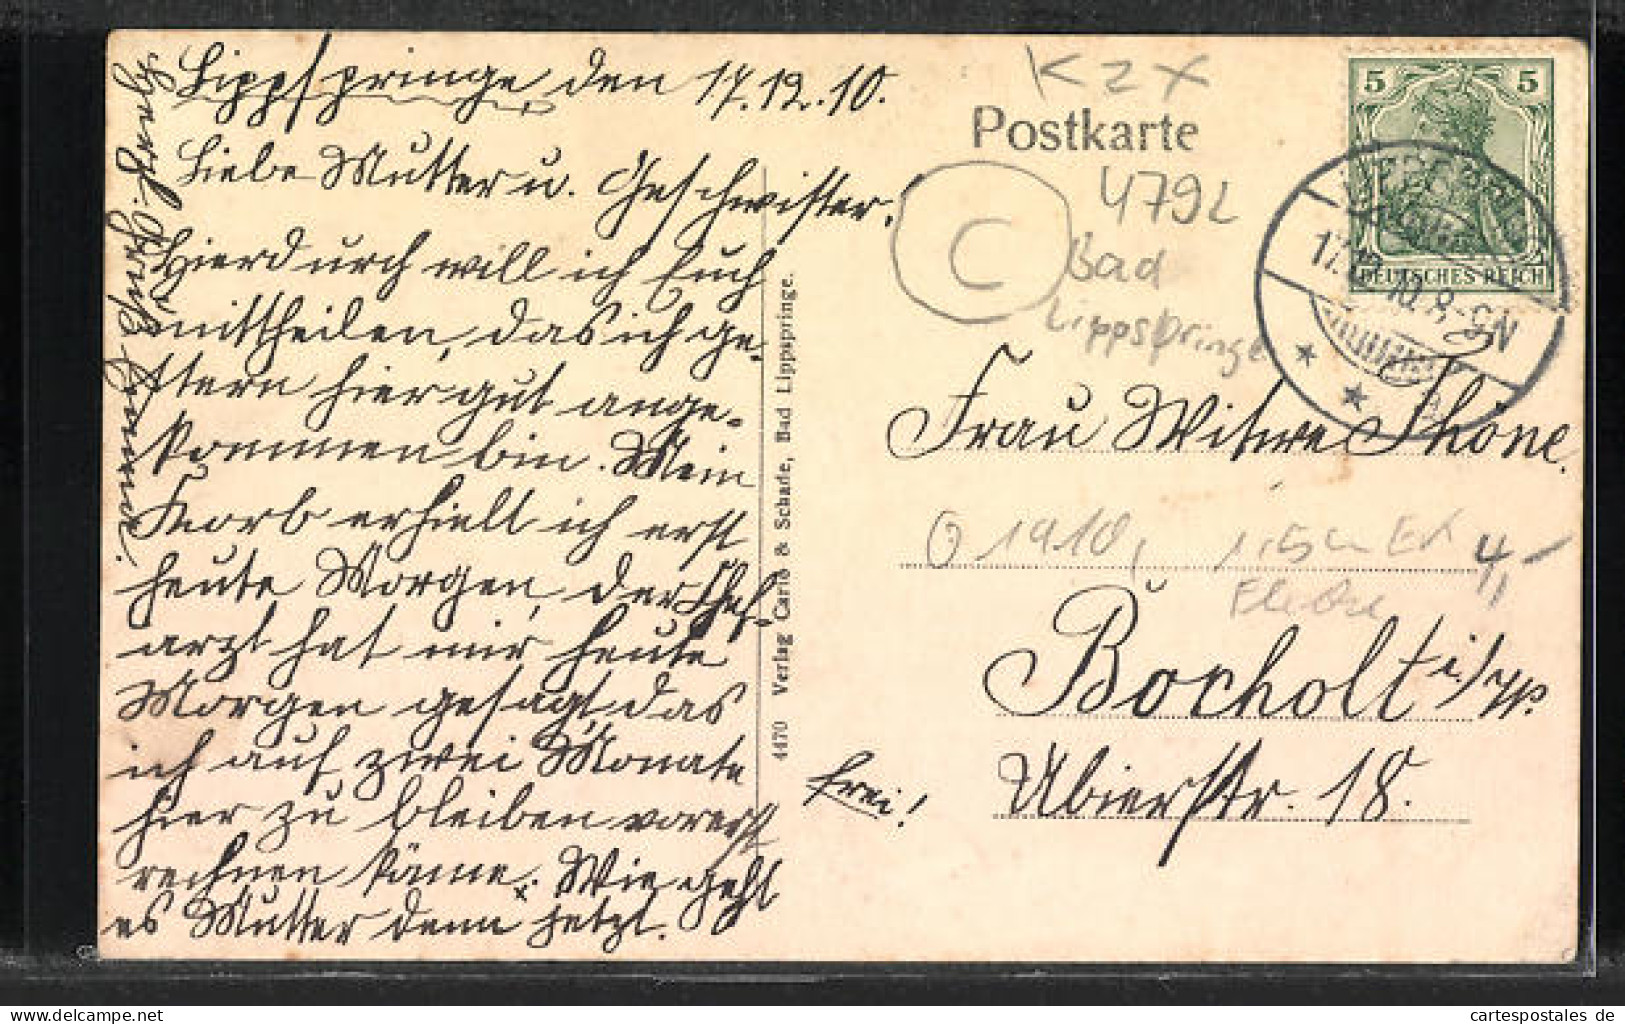 Lippspringe, den 17.12.10.
Liebe Mutter u. Geschwister!
Hierdurch will ich Euch
mittheilen, das ich ge-
stern hier gut ange-
kommen bin. Mein
Korb erhielt ich erst
heute Morgen, der Chef-
arzt hat mir heute
Morgen gesagt, das
ich auf zwei Monate
hier zu bleiben vorerst
rechnen käme. Wie geht
es Mutter denn jetzt.
Herzl. Gruß
4470 Verlag Carlé & Schade, Bad Lippspringe.
K2X
Postkarte
4792
C
Bad
Lippspringe
5 5
DEUTSCHES REICH
17.12.10. 8-9N
Frau Witwe Thöne.
1910,
4,-
Bocholt i/
Frei!
Ubierstr. 18.
www.cartespostales.eu
cartespostales de